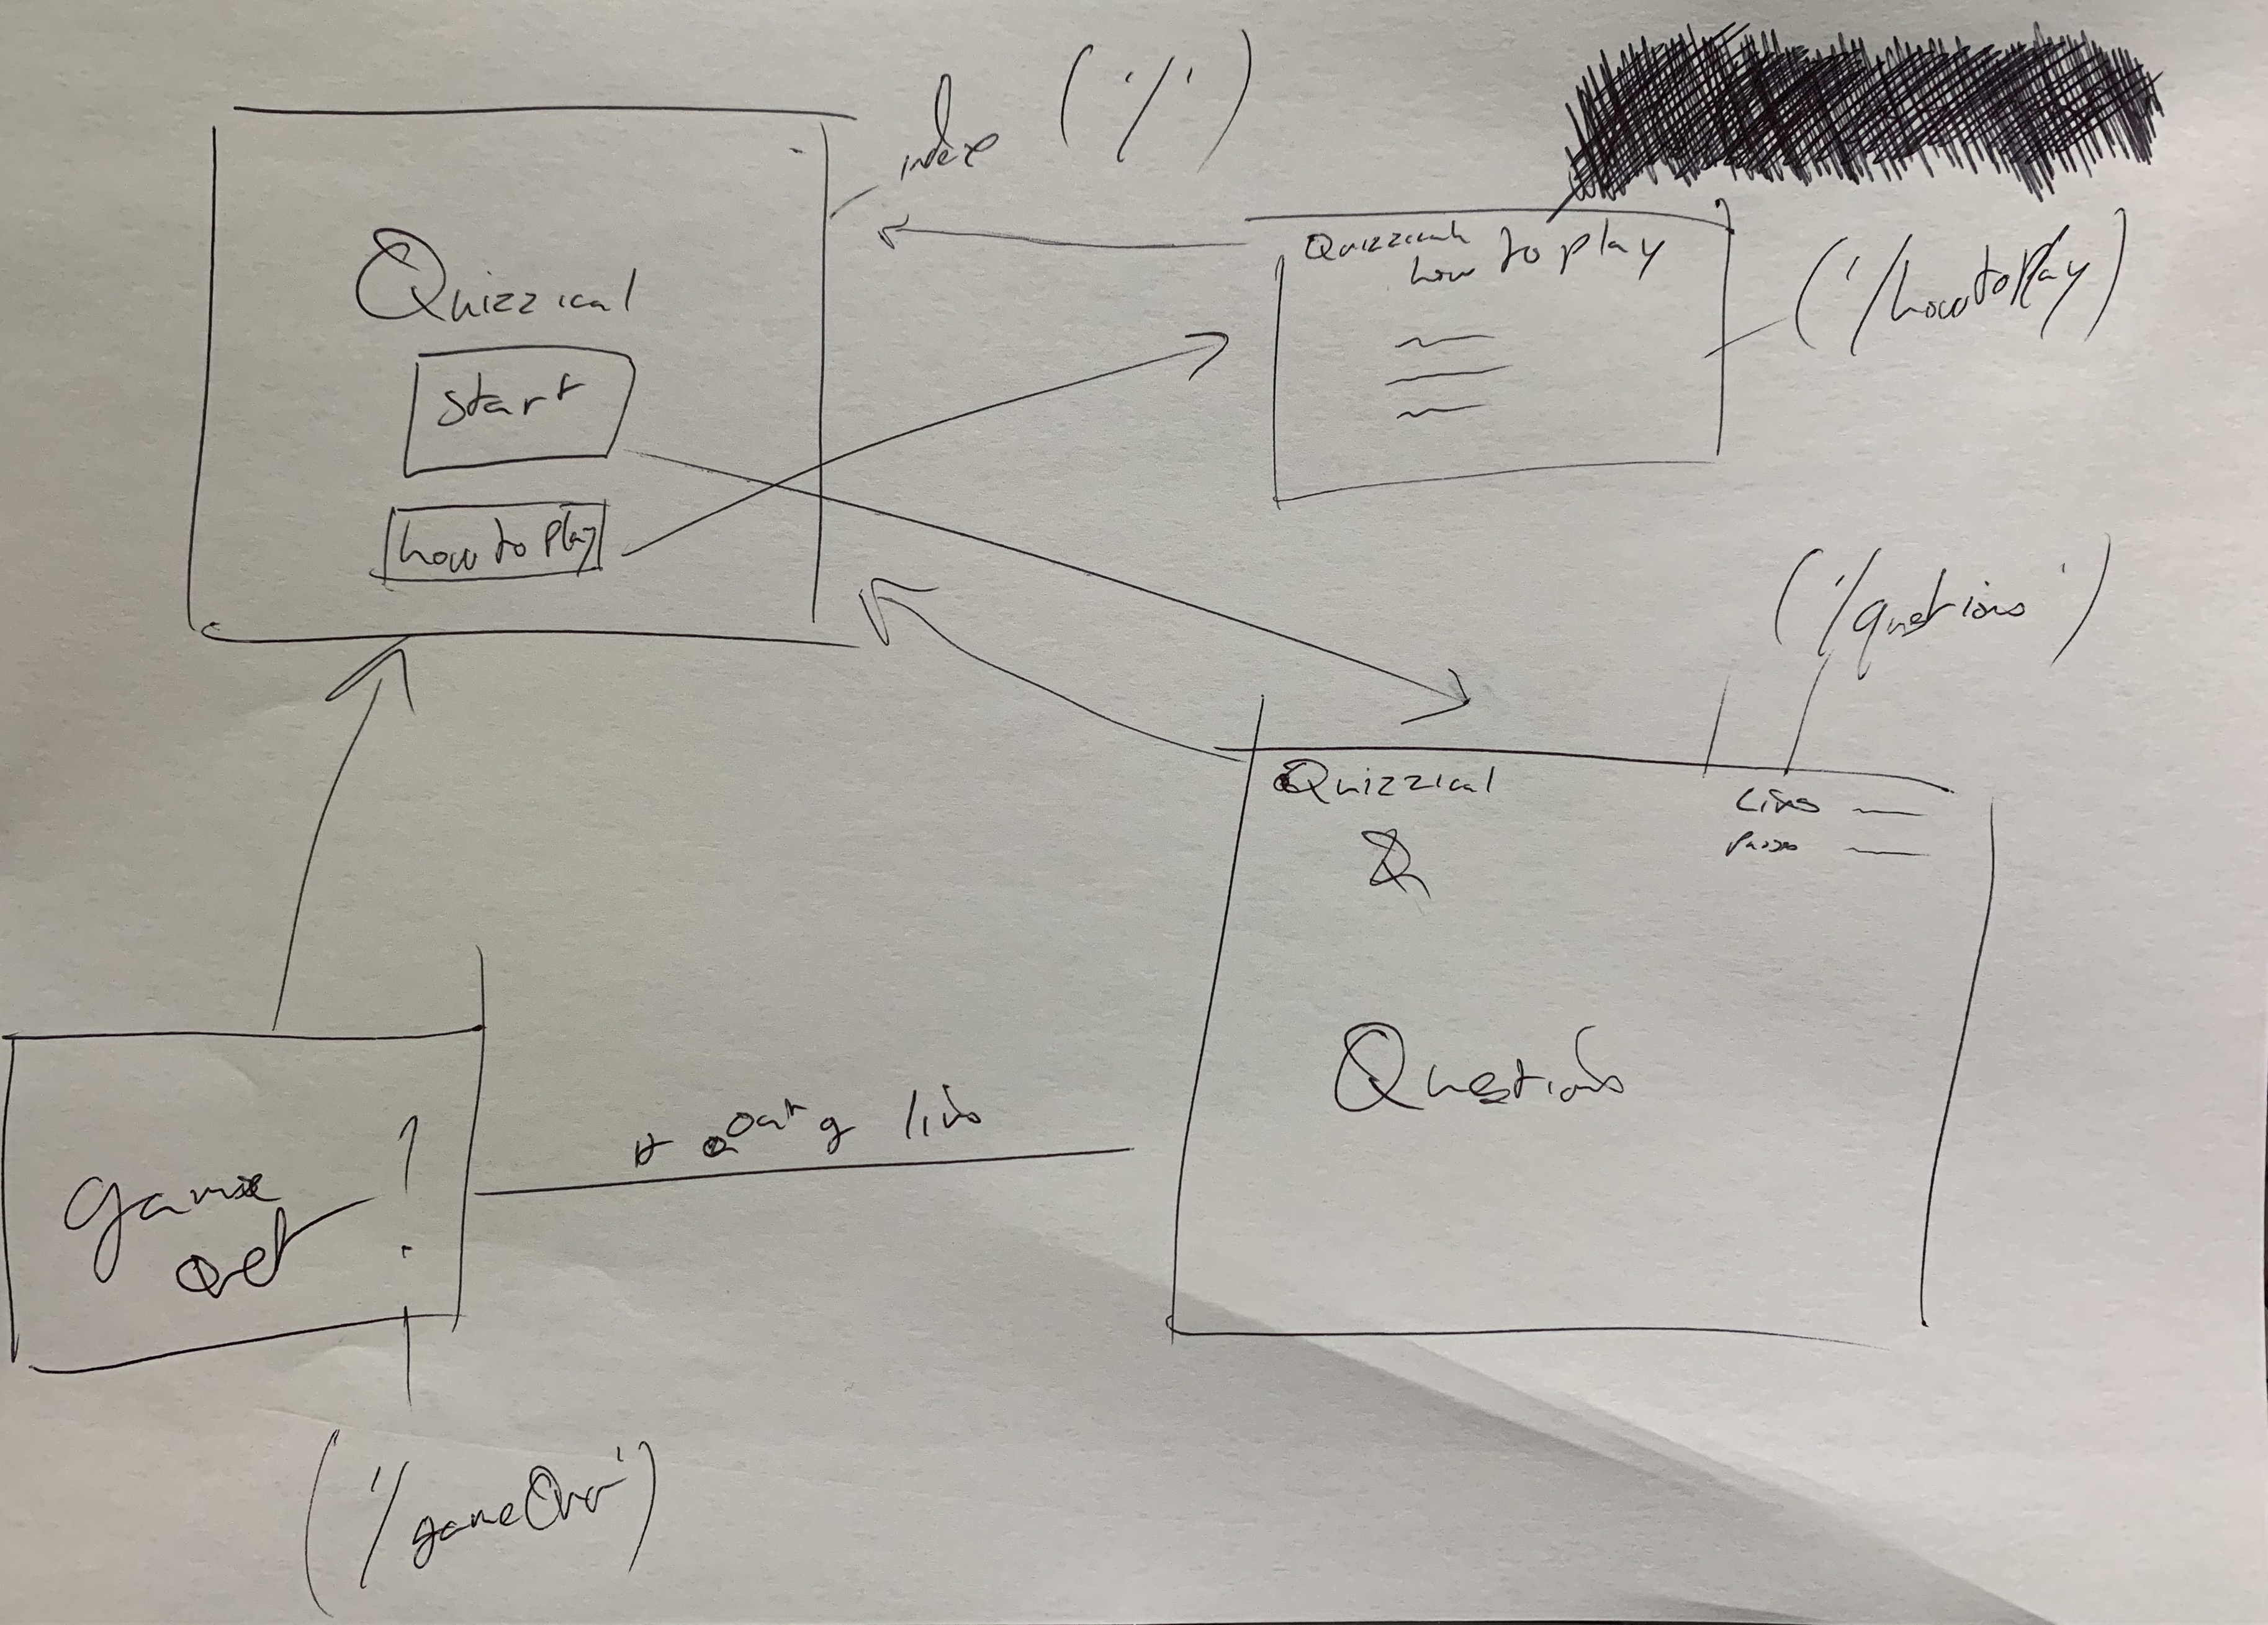 index ('/')
Quizzical
start
how to play
Quizzical
how to play
('/howtoPlay)
('/questions')
Quizzical
Lives
Passes
Questions
if out of lives
game
over !
('/gameOver')